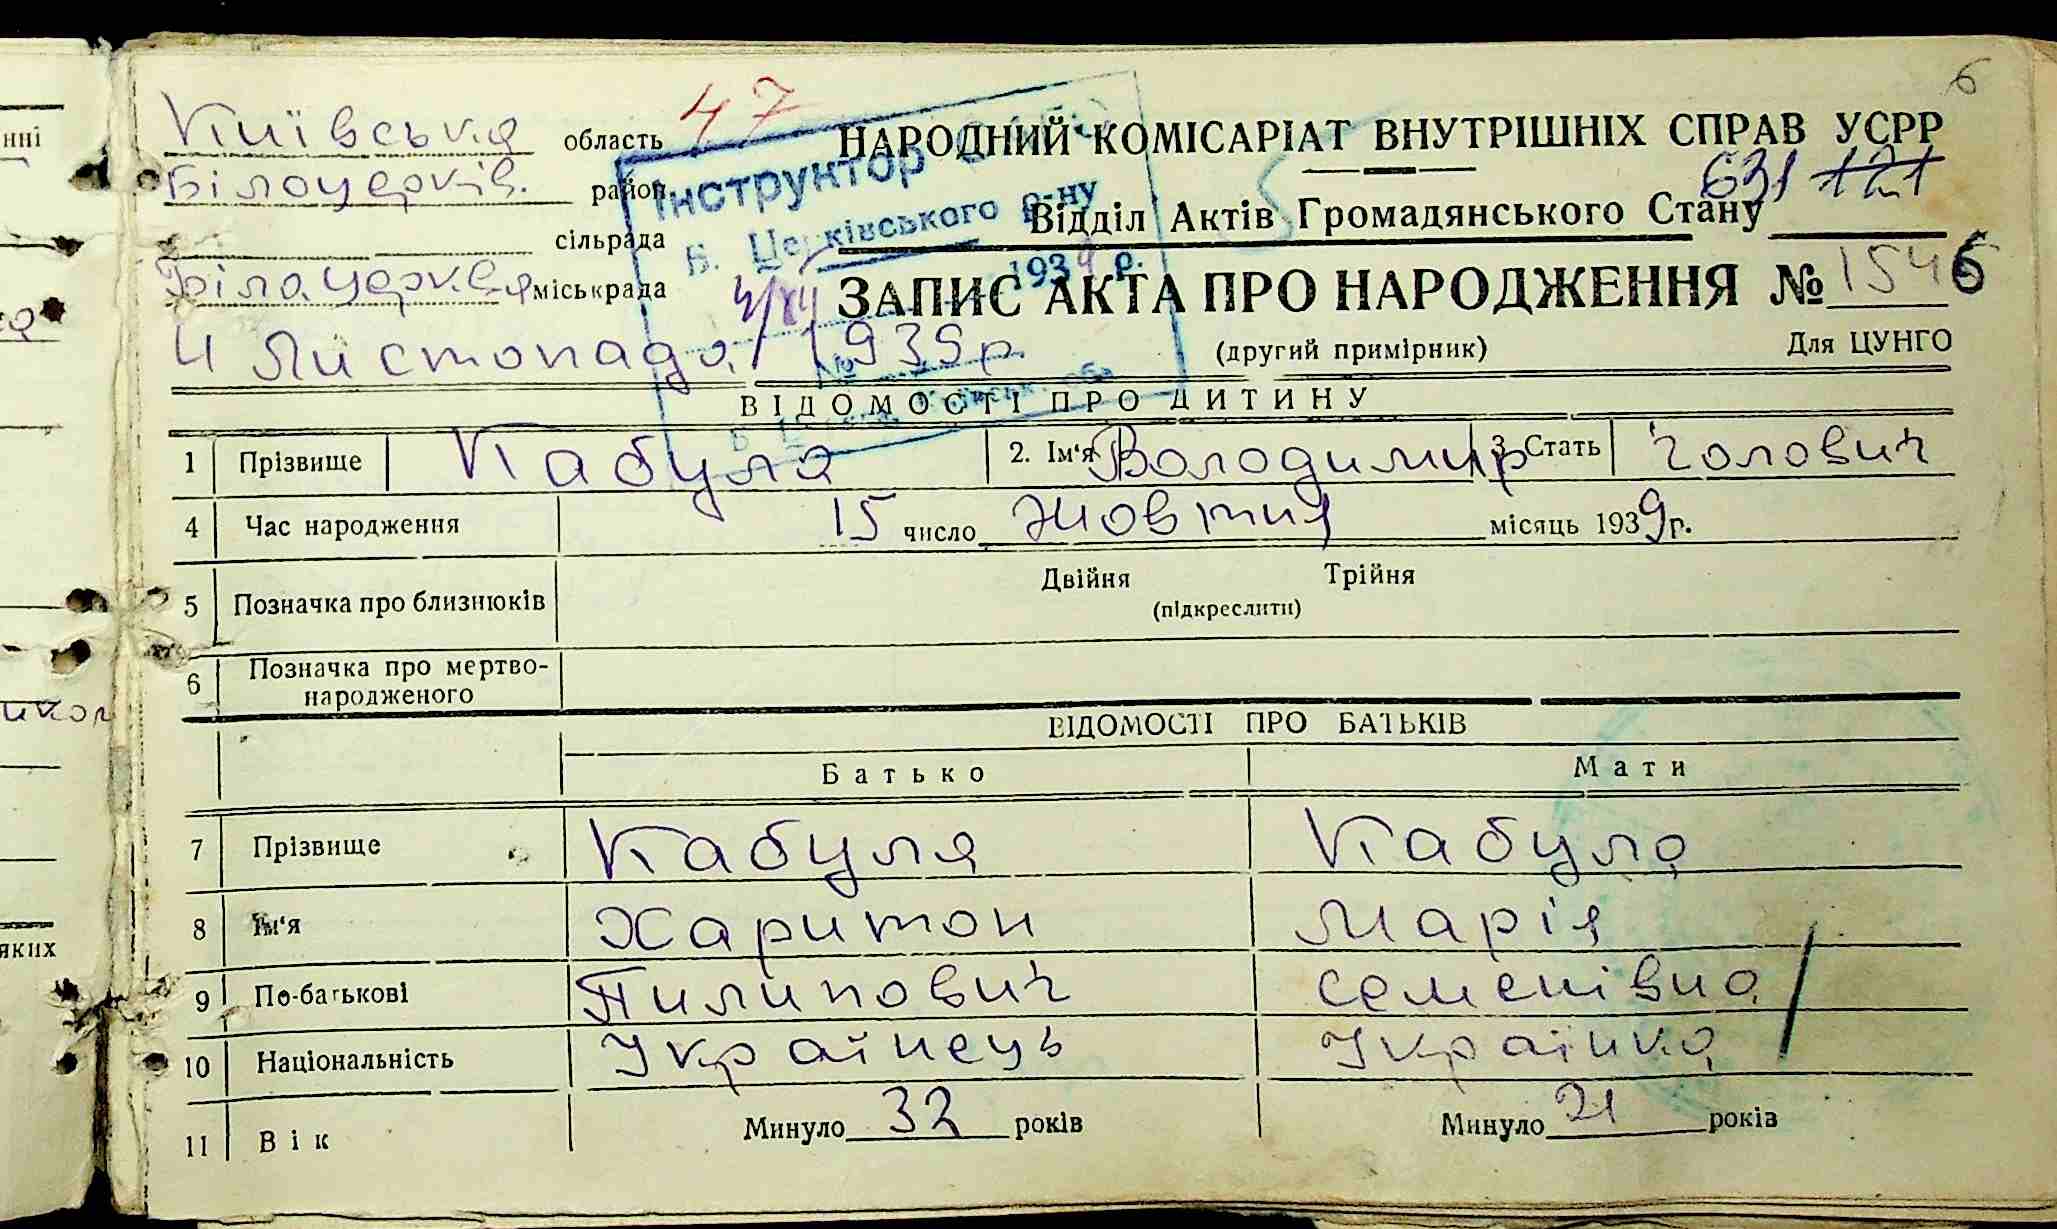 6
Київська область 47 НАРОДНИЙ КОМІСАРІАТ ВНУТРІШНІХ СПРАВ УСРР
Білоцерків. район
Інструктор
Б. Церківського р-ну
193 р.
631 121
Відділ Актів Громадянського Стану
сільрада
Білоцерквя міськрада
ЗАПИС АКТА ПРО НАРОДЖЕННЯ № 1546
4 Листопада 1939 р. (другий примірник) Для ЦУНГО
ВІДОМОСТІ ПРО ДИТИНУ
1 Прізвище Кабула 2. Ім'я Володимир 3. Стать Чолович
4 Час народження 15 число Жовтня місяць 1939 р.
5 Позначка про близнюків Двійня Трійня
(підкреслити)
6 Позначка про мертво-
народженого
ВІДОМОСТІ ПРО БАТЬКІВ
Батько Мати
7 Прізвище Кабуля Кабула
8 Ім'я Харитон Марія
9 По-батькові Пилипович Семенівна
10 Національність Українець Українка
11 Вік Минуло 32 років Минуло 21 років
нні
яких